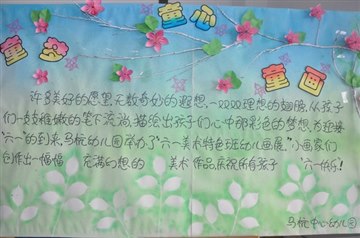 童心
童梦
童画
许多美好的愿望,无数奇幻的遐想,一双双理想的翅膀,从孩子
们一支支稚嫩的笔下流淌,描绘出孩子们心中那彩色的梦想,为迎接
"六一"的到来,马杭幼儿园举办了"六一美术特色班幼儿画展"小画家们
创作出一幅幅 充满幻想的 美术作品庆祝所有孩子 "六一"快乐!
马杭中心幼儿园